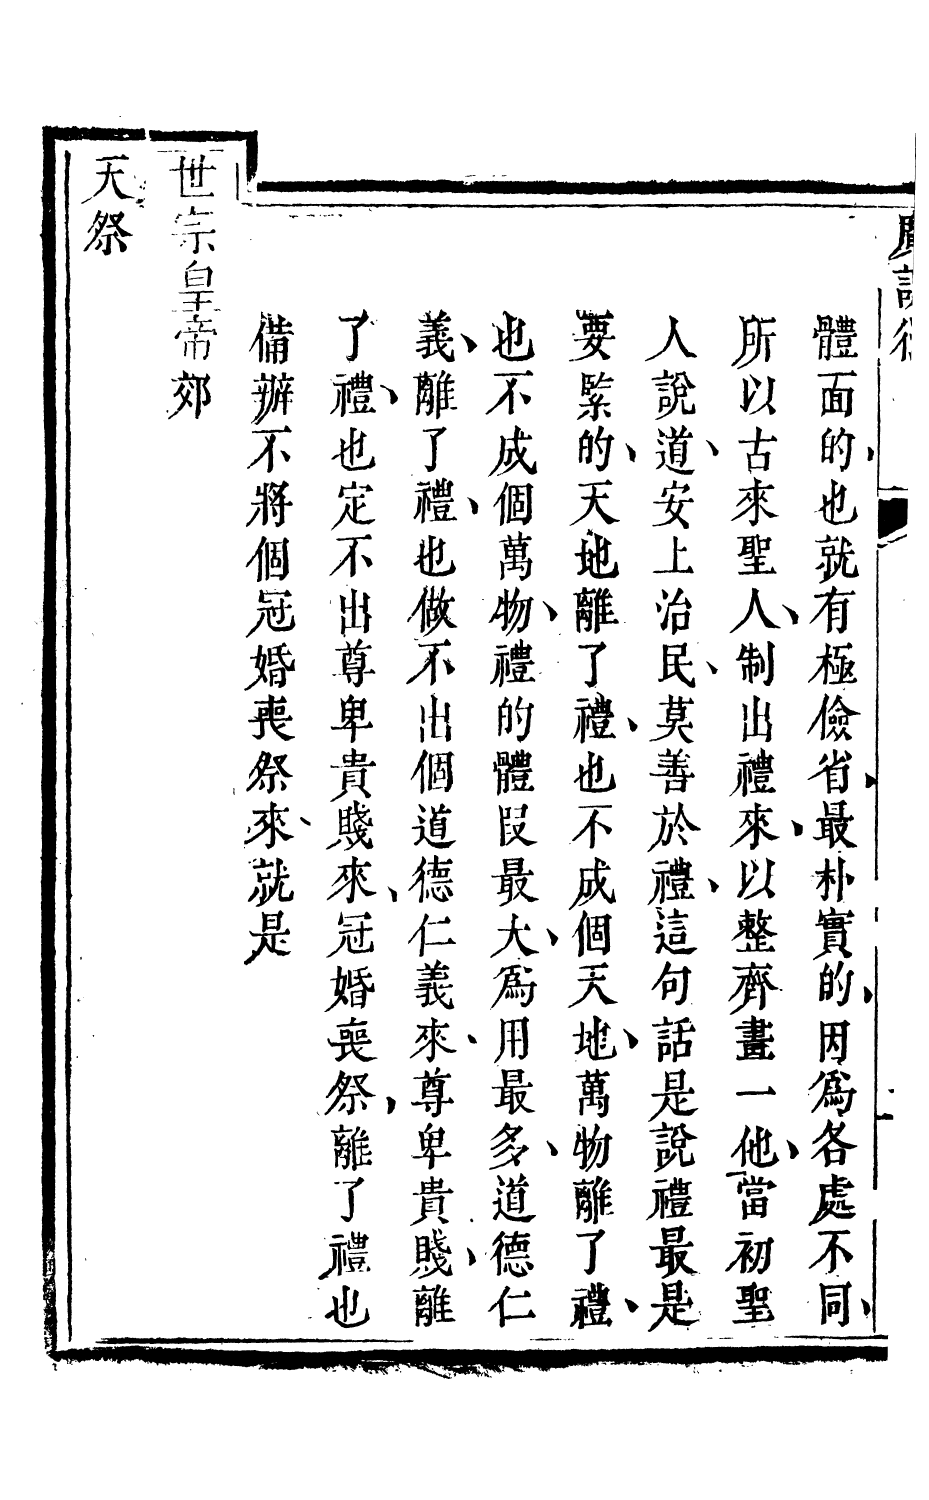 體面的、也就有極儉省、最朴實的、因爲各處不同、
所以古來聖人、制出禮來、以整齊畫一他、當初聖
人說道、安上治民、莫善於禮、這句話是說禮最是
要緊的、天地離了禮、也不成個天地、萬物離了禮、
也不成個萬物、禮的體段最大、爲用最多、道德仁
義、離了禮、也做不出個道德仁義來、尊卑貴賤、離
了禮、也定不出尊卑貴賤來、冠婚喪祭、離了禮也
備辦不將個冠婚喪祭來、就是
世宗皇帝郊
天祭